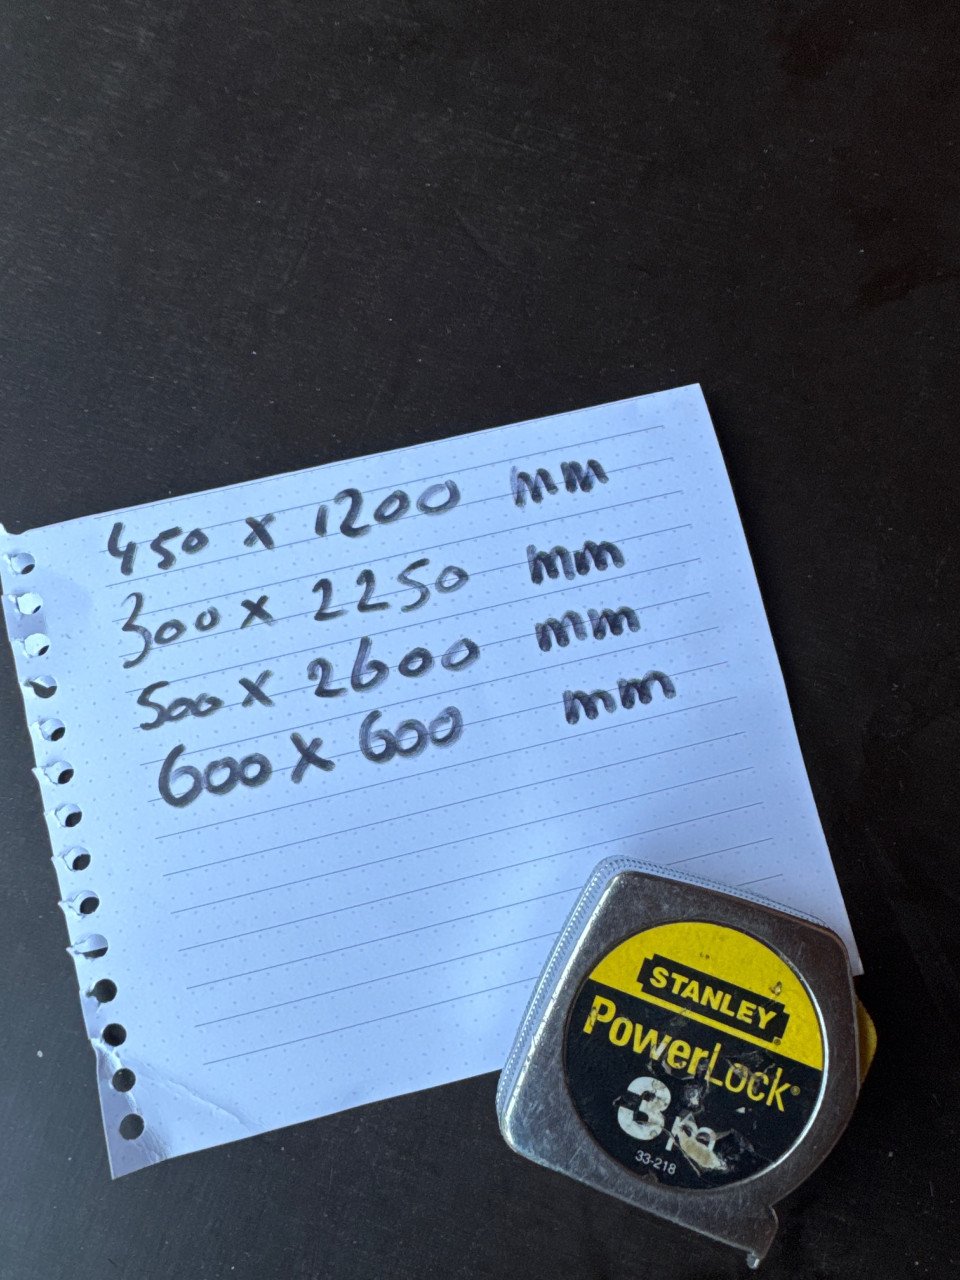 450 x 1200 mm
300 x 2250 mm
500 x 2600 mm
600 x 600 mm
STANLEY®
PowerLock®
3m
33-218